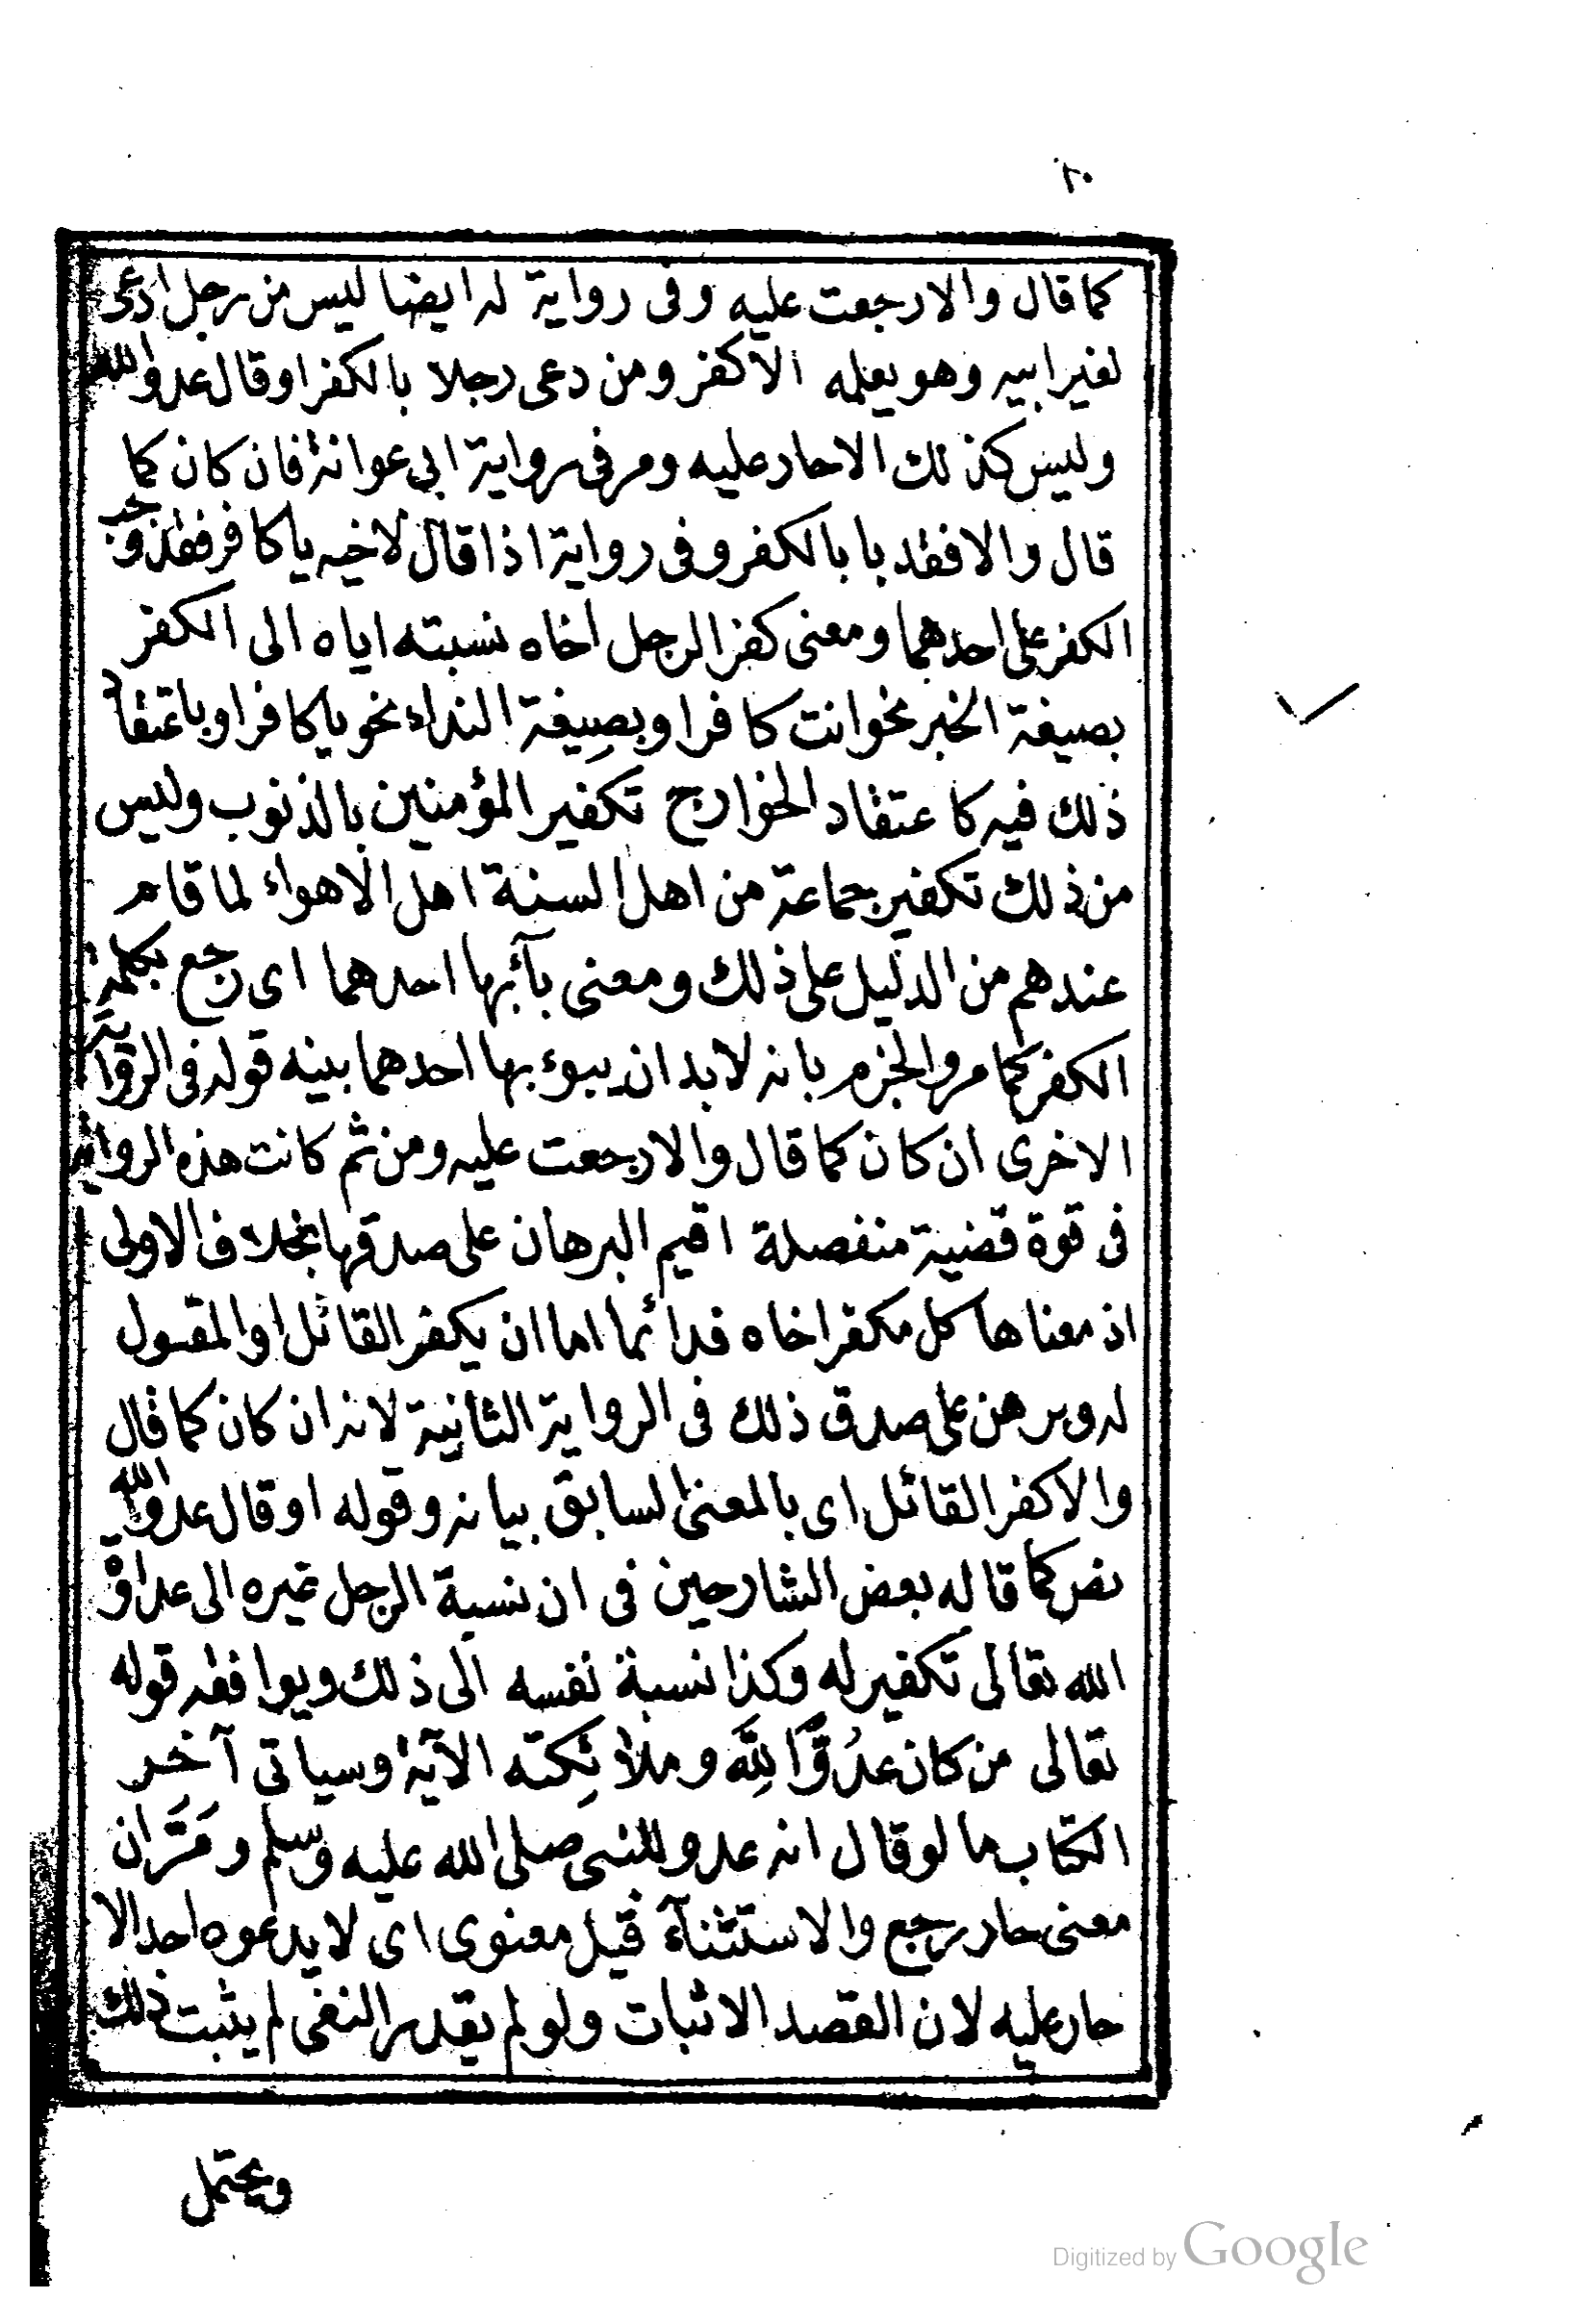 كما قال والا رجعت عليه وفى رواية له ايضا ليس من رجل ادعى
لغير ابيه وهو يعلمه الا كفر ومن دعى رجلا بالكفر او قال عدو الله
وليس كذلك الا حار عليه ومر فى رواية ابى عوانة فان كان كما
قال والا فقد با بالكفر وفى رواية اذا قال لاخيه ياكافر فقد وجب
الكفر على احدهما ومعنى كفر الرجل اخاه نسبته اياه الى الكفر
بصيغة الخبر نحو انت كافر او بصيغة النداء نحو ياكافر او باعتقاد
ذلك فيه كاعتقاد الخوارج تكفير المؤمنين بالذنوب وليس
من ذلك تكفير جماعة من اهل السنة اهل الاهواء لما قام
عندهم من الدليل على ذلك ومعنى بآئ بها احدهما اى رجع بكلمة
الكفر كما مر والجزم بانه لابد ان يبوء بها احدهما بينه قوله فى الرواية
الاخرى ان كان كما قال والا رجعت عليه ومن ثم كانت هذه الرواية
فى قوة قضية منفصلة اقيم البرهان على صدقها بخلاف الاولى
اذ معناها كل مكفر اخاه فدائما اما ان يكفر القائل او المقول
له وبرهن على صدق ذلك فى الرواية الثانية لانه ان كان كما قال
والا كفر القائل اى بالمعنى السابق بيانه وقوله او قال عدو الله
نص كما قاله بعض الشارحين فى ان نسبة الرجل غيره الى عداوة
الله تعالى تكفير له وكذا نسبة نفسه الى ذلك ويوافقه قوله
تعالى من كان عدُوَّا لِلَّه وملائكته الآية وسياتى آخر
الكتاب ما لو قال انه عدو للنبى صلى الله عليه وسلم ومَرَّ ان
معنى حار رجع والاستثنآء قيل معنوى اى لا يدعوه احد الا
حار عليه لان القصد الاثبات ولو لم يقدر النفى لم يثبت ذلك
ويحتمل
Digitized by Google